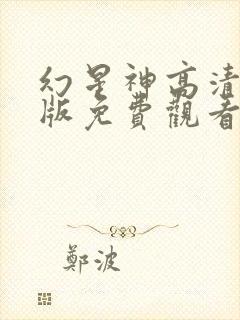 幻星神高清
版免費觀看
鄭波